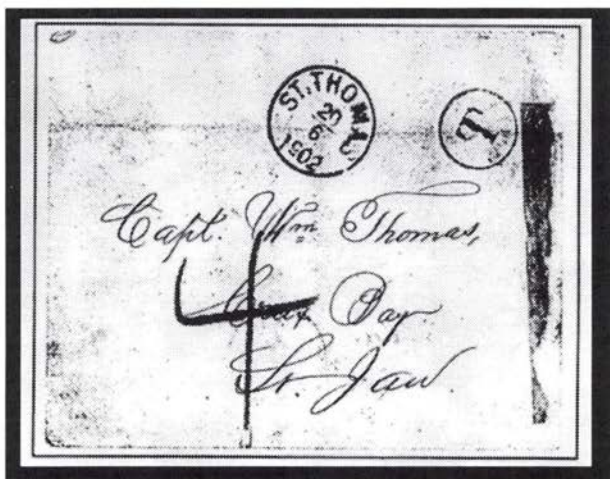 ST. THOMAS
20
6
1902
T
Capt. Wm Thomas,
4
Crux Bay
St. Jan